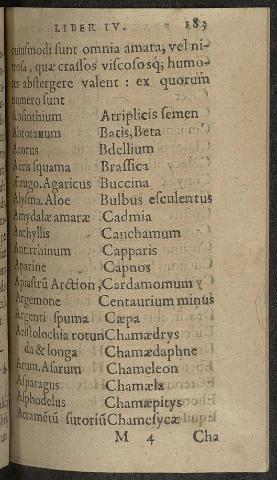 LIBER IV. 183
cuiusmodi sunt omnia amara, vel ni-
trosa, quæ crassos viscososq; humo-
res abstergere valent : ex quorum
numero sunt
Absinthium Atriplicis semen
Abrotanum Batis, Beta
Acorus Bdellium
Aeris squama Brassica
Aerugo. Agaricus Buccina
Alysma. Aloe Bulbus esculentus
Amydalæ amaræ Cadmia
Anthyllis Canchamum
Antirrhinum Capparis
Aparine Capnos
Apiastrū Arction, Cardamomum
Argemone Centaurium minus
Argenti spuma Cæpa
Aristolochia rotun Chamædrys
da & longa Chamædaphne
Arum. Asarum Chameleon
Asparagus Chamæla
Asphodelus Chamæpitys
Atramētū sutoriū Chamesycæ
M 4 Cha